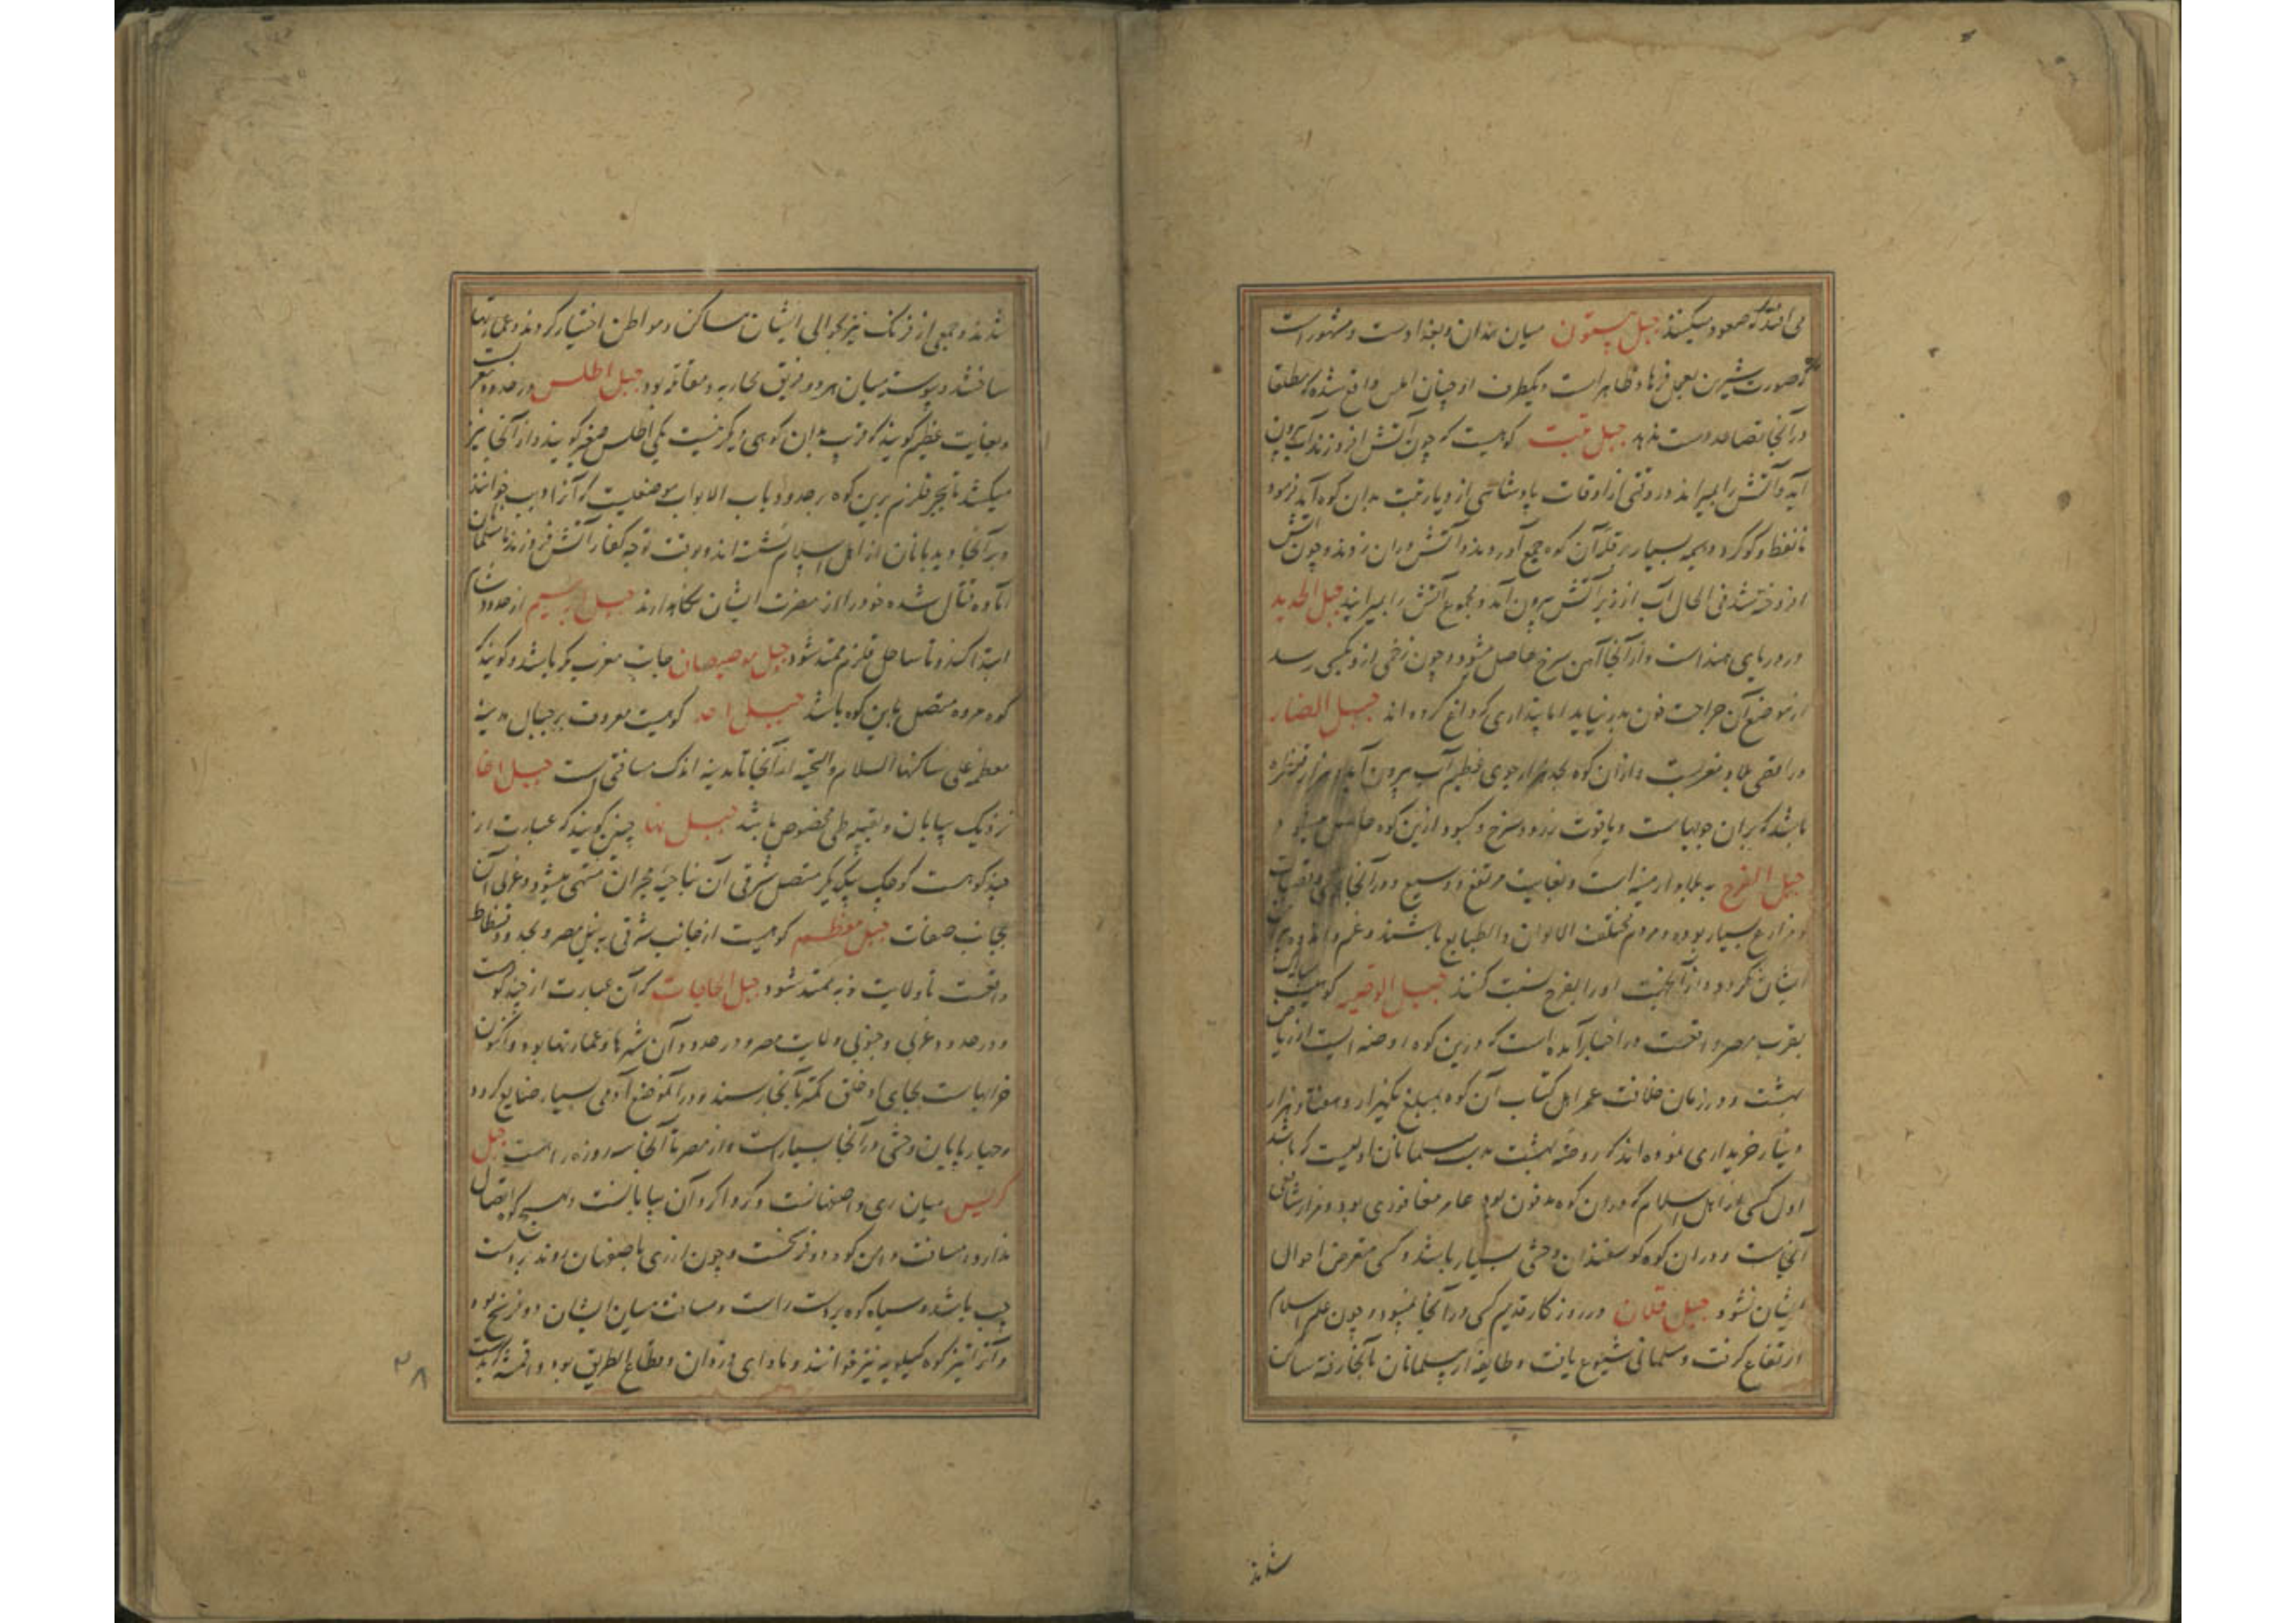 می افتد که صعود میکنند جبل بیستون میان همدان و بغدادست و مشهور است
که صورت شیرین بعمل فرهاد ظاهر است و یکطرف او چنان املس واقع شده که مطلقا
در آنجا تصاعد دست ندهد جبل تبت کوهیست که چون آتش افروزند آب بیرون
آید و آتش را بمیراند در وقتی از اوقات پادشاهی از دیار تبت بدان کوه آمد فرمود
تا نفط و کوکرد و هیمه بسیار بر قله آن کوه جمع آوردند و آتش دران زدند و چون آتش
افروخته شد فی الحال آب از زیر آتش بیرون آمد و مجموع آتش را بمیرانید جبل الحدید
در دریای هندست و از آنجا آهن سرخ حاصل میشود و چون زخمی ازو بکسی رسد
از موضع آن جراحت خون بدر نیاید اما پنداری که داغ کرده اند جبل الصار
در اقصی بلاد مغربست و ازان کوه بحد هزار جوی عظیم آب بیرون آید و هزار قنطره
باشد که بران جویهاست و یاقوت زرد و سرخ و کبود ازین کوه حاصل میشود
جبل الفرح به بلاد ارمنیه است و بغایت مرتفع و وسیع و در آنجا قری و قصبات
و مزارع بسیار بوده و مردم مختلف الالوان والطبایع باشند و غم و اندوه
ایشان نکردد و از آنجهت اورا بفرح نسبت کنند جبل الوقیر کوهیست
بقرب مصر واقعست در اخبار آمده است که درین کوه روضه ایست از ریاض
بهشت و در زمان خلافت عمر اهل کتاب آن کوه بمبلغ یکهزار و هفتاد هزار
دینار خریداری نموده اند که روضه بهشت بدست مسلمانان اولیست که باشد
اول کسی از اهل اسلام که دران کوه مدفون بود عامر معافری بود و مزار شافعی
آنجاست و دران کوه کوسفندان وحشی بسیار باشد و کسی متعرض احوال
ایشان نشود جبل قلان در روزکار قدیم کسی در آنجا نمیبود و چون علم اسلام
ارتفاع کرفت و مسلمانی شیوع یافت و طایفه از مسلمانان بآنجا رفته ساکن
شدند
شدند و جمعی از فرنک نیز بحوالی ایشان مساکن و مواطن اختیار کردند و عمارتها
ساختند و پیوسته میان هر دو فریق محاربه و معاقر بود جبل اطلس در حدود مغربست
و بغایت عظیم کویند که قرب بدان کوهی دیکر نیست یکی اطلس صغیر کویند و از آنجا نیز
میکشد تا بحر قلزم برین کوه بر حدود باب الابواب موضعیست که آنرا دیب خوانند
و بر آنجا دیدبانان از اهل اسلام نشسته اند و بوقت توجه کفار آتش فروزند تا مسلمانان
آماده قتال شده خود را از مضرت ایشان نکاهدارند جبل ابر سیم از حدود شام
ابتدا کند و تا ساحل قلزم ممتد شود جبل موصیصان جانب مغرب مکه باشد و کویند که
کوه مروه متصل باین کوه باشد جبل احد کوهیست معروف بر جبال مدینه
معظم علی ساکنها السلام والتحیه از آنجا تا مدینه اندک مسافتی است جبل اجا
نزدیک بیابان و بقبیله طی مخصوص باشد جبل تها چنین کویند که عبارت از
چند کوهست کوچک بیکدیکر متصل شرقی آن بناحیه نجران منتهی میشود و غربی آن
بجانب صغات جبل مقطم کوهیست از جانب شرقی به نیل مصر و بحدود فسطاط
واقعست تا ولایت نوبه ممتد شود جبل الحاجات که آن عبارت از چند کوهست
و در حدود غربی و جنوبی ولایت مصر و در حدود آن شهرها و عمارتها بوده و اکنون
خرابهاست بجای او خلق کمتر بآنجا رسند و در آنموضع آدمی بسیار ضایع کردد
و چهارپایان وحشی در آنجا بسیارست و از مصر تا آنجا سه روزه راهست جبل
کرکس میان ری و اصفهانست و کرداکرد آن بیابانست و بهیچ کوه اتصال
ندارد و مسافت این کوه دو فرسخست و چون از ری باصفهان روند بر دست
چپ باشد و سیاه کوه بر دست راست و مسافت میان ایشان دو فرسخ بود
و آنرا نیز کوه کیلویه نیز خوانند و ماوای دزدان و قطاع الطریق بود و
۲۸